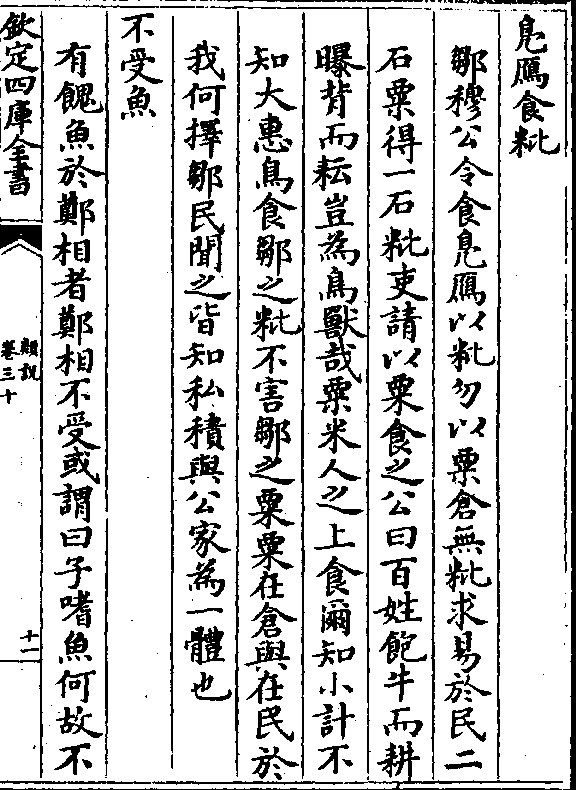 鳬鴈食粃
鄒穆公令食鳬鴈以粃勿以粟倉無粃求易於民二
石粟得一石粃吏請以粟食之公曰百姓飽牛而耕
曝背而耘豈為鳥獸哉粟米人之上食爾知小計不
知大惠鳥食鄒之粃不害鄒之粟粟在倉與在民於
我何擇鄒民聞之皆知私積與公家為一體也
不受魚
有餽魚於鄭相者鄭相不受或謂曰子嗜魚何故不
欽定四庫全書
類說
卷三十
十一